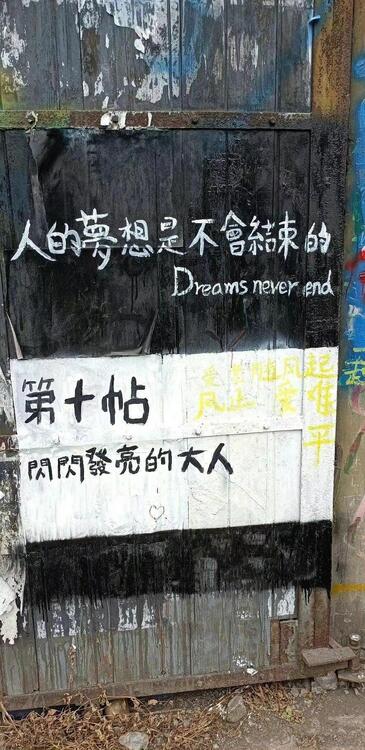 人的夢想是不會結束的
Dreams never end
第十帖
閃閃發亮的大人